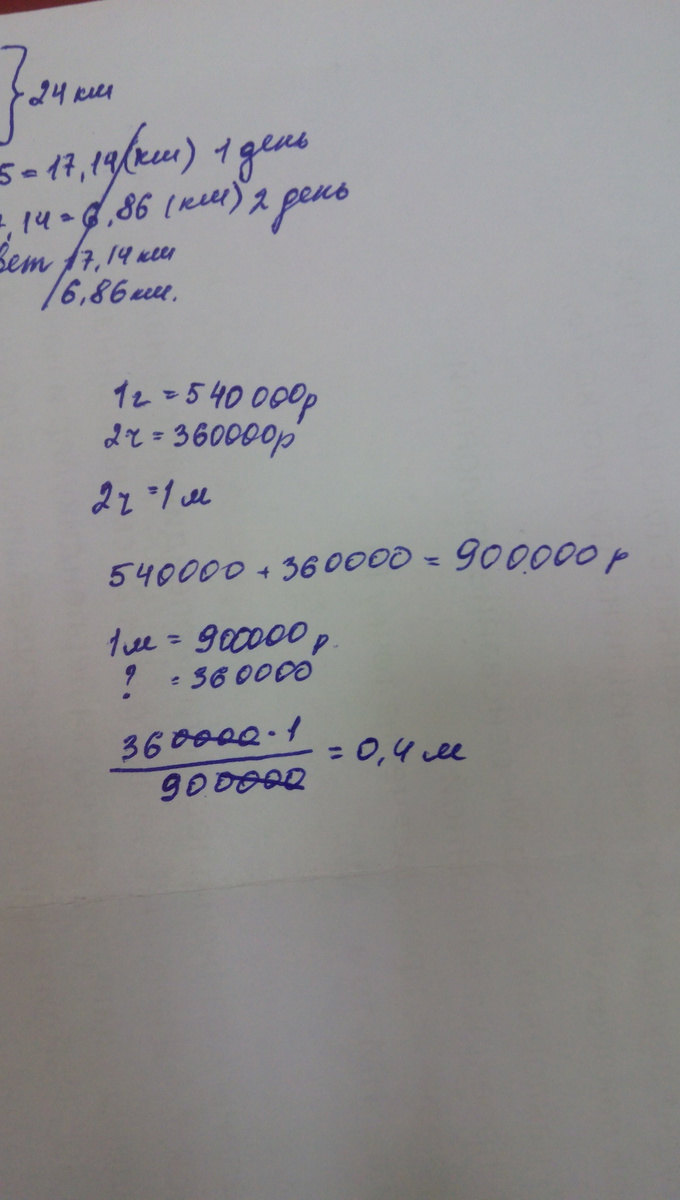 } 24 км
5 = 17,14 (км) 1 день
,14 = 6,86 (км) 2 день
вет 17,14 км
6,86 км.
1г = 540 000р
2ч = 360000р
2ч = 1 м
540000 + 360000 = 900000 р
1м = 900000 р.
? = 360000
360000 · 1
900000
= 0,4 м